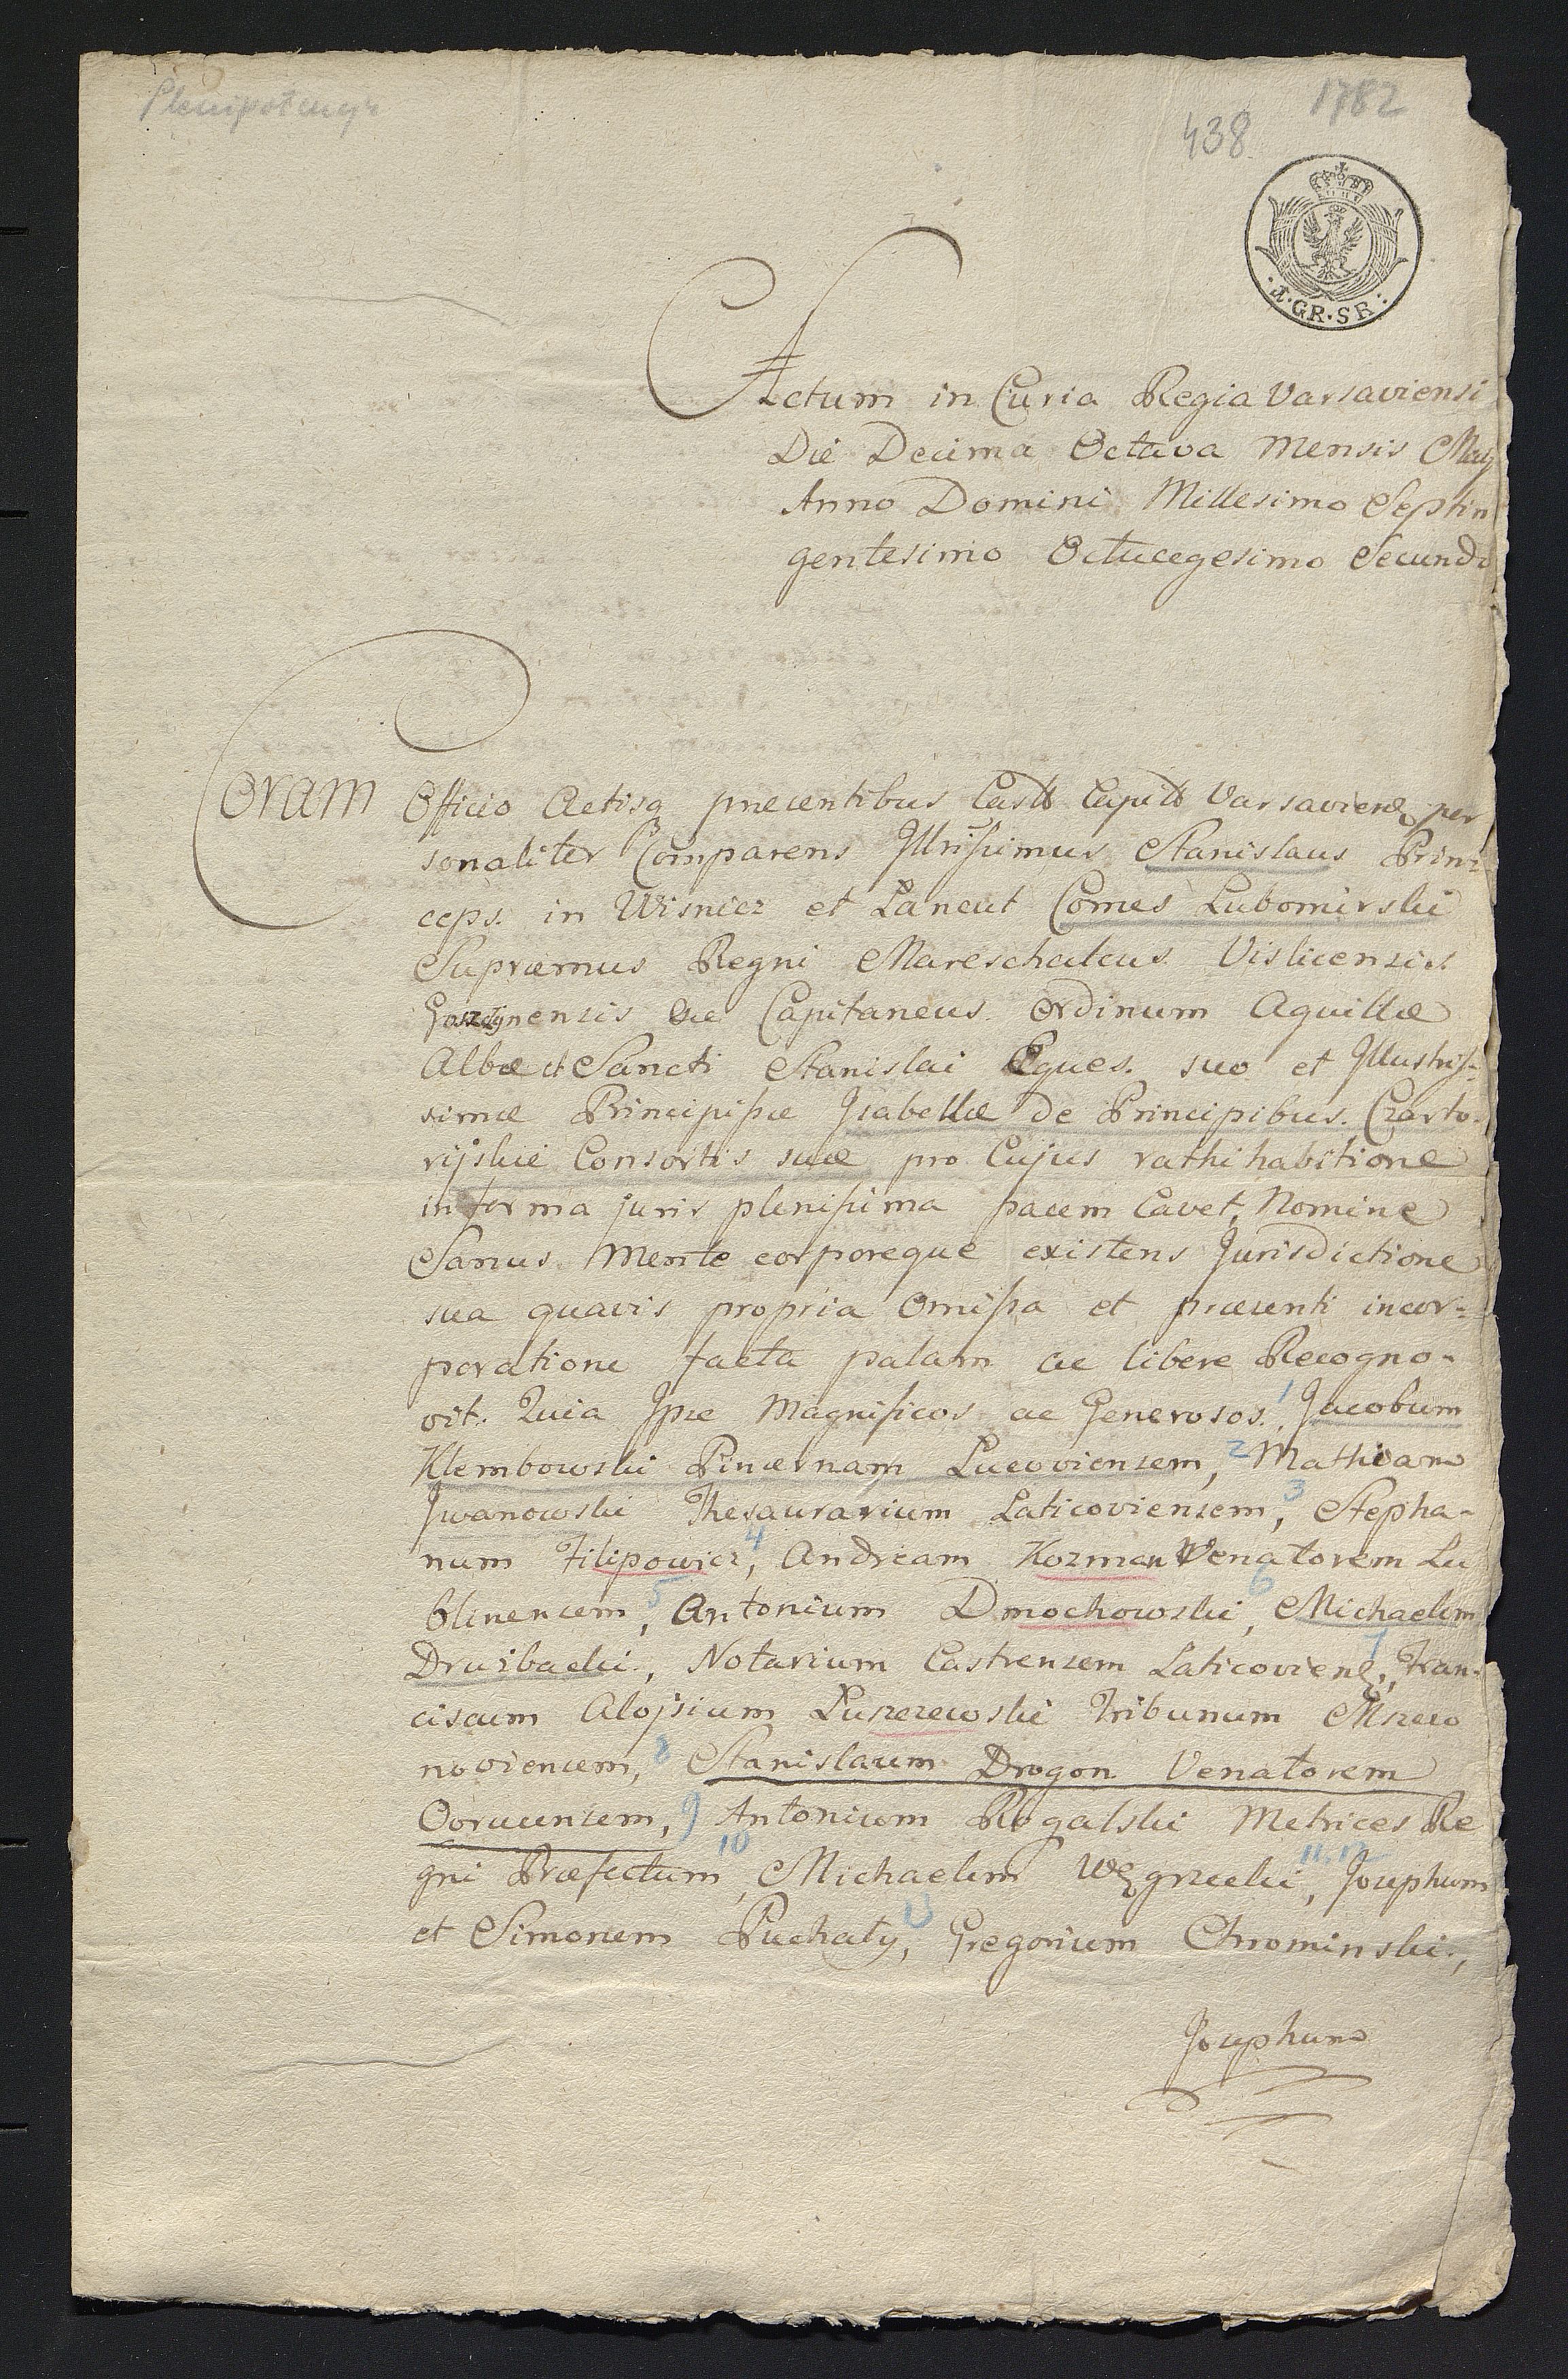 Plenipotencya
1782
438
4·GR·SR·
Actum in Curia Regia Varsaviensi
Die Decima Octava Mensis May
Anno Domini Millesimo Septin
gentesimo Octuagesimo Secundo
Coram Officio Actisq præsentibus Castr Capit Varsaviens per
sonaliter Comparens Jllrissimus Stanislaus Prin
ceps in Wisnicz et Lancut Comes Lubomirski
Supræmus Regni Mareschalcus Vislicensis
Gosztynensis &ce Capitaneus. Ordinum Aquillæ
Albæ et Sancti Stanislai Eques. suo et Jllustris-
simæ Principissæ Jsabellæ de Principibus. Czarto-
ryskie Consortis suæ pro Cujus rathihabitione
in forma juris plenissima pacem Cavet, Nomine
Sanus Mente corporeque existens Jurisdictione
sua quavis propria Omissa et præsenti incor-
poratione facta palam ac libere Recogno-
vit. Quia Jpse Magnificos ac Generosos. 1 Jacobum
Klembowski Pincernam Lucoviensem, 2 Mathiam
Jwanowski Thesaurarium Laticoviensem, 3 Stepha-
num Filipowicz, 4 Andream Kozman Venatorem Lu
blinensem, 5 Antonium Dmochowski, 6 Michaelem
Druzbacki, Notarium Castrensem Laticoviens, 7 Fran-
ciscum Alojsium Luszczewski Tribunum Mszczo
noviensem, 8 Stanislaum Drogon Venatorem
Ovrucensem, 9 Antonium Rogalski Metrices Re
gni Præfectum, 10 Michaelem Węgrzecki, 11, 12 Josephum
et Simonem Puchały, 13 Gregorium Chrominski,
Josephum